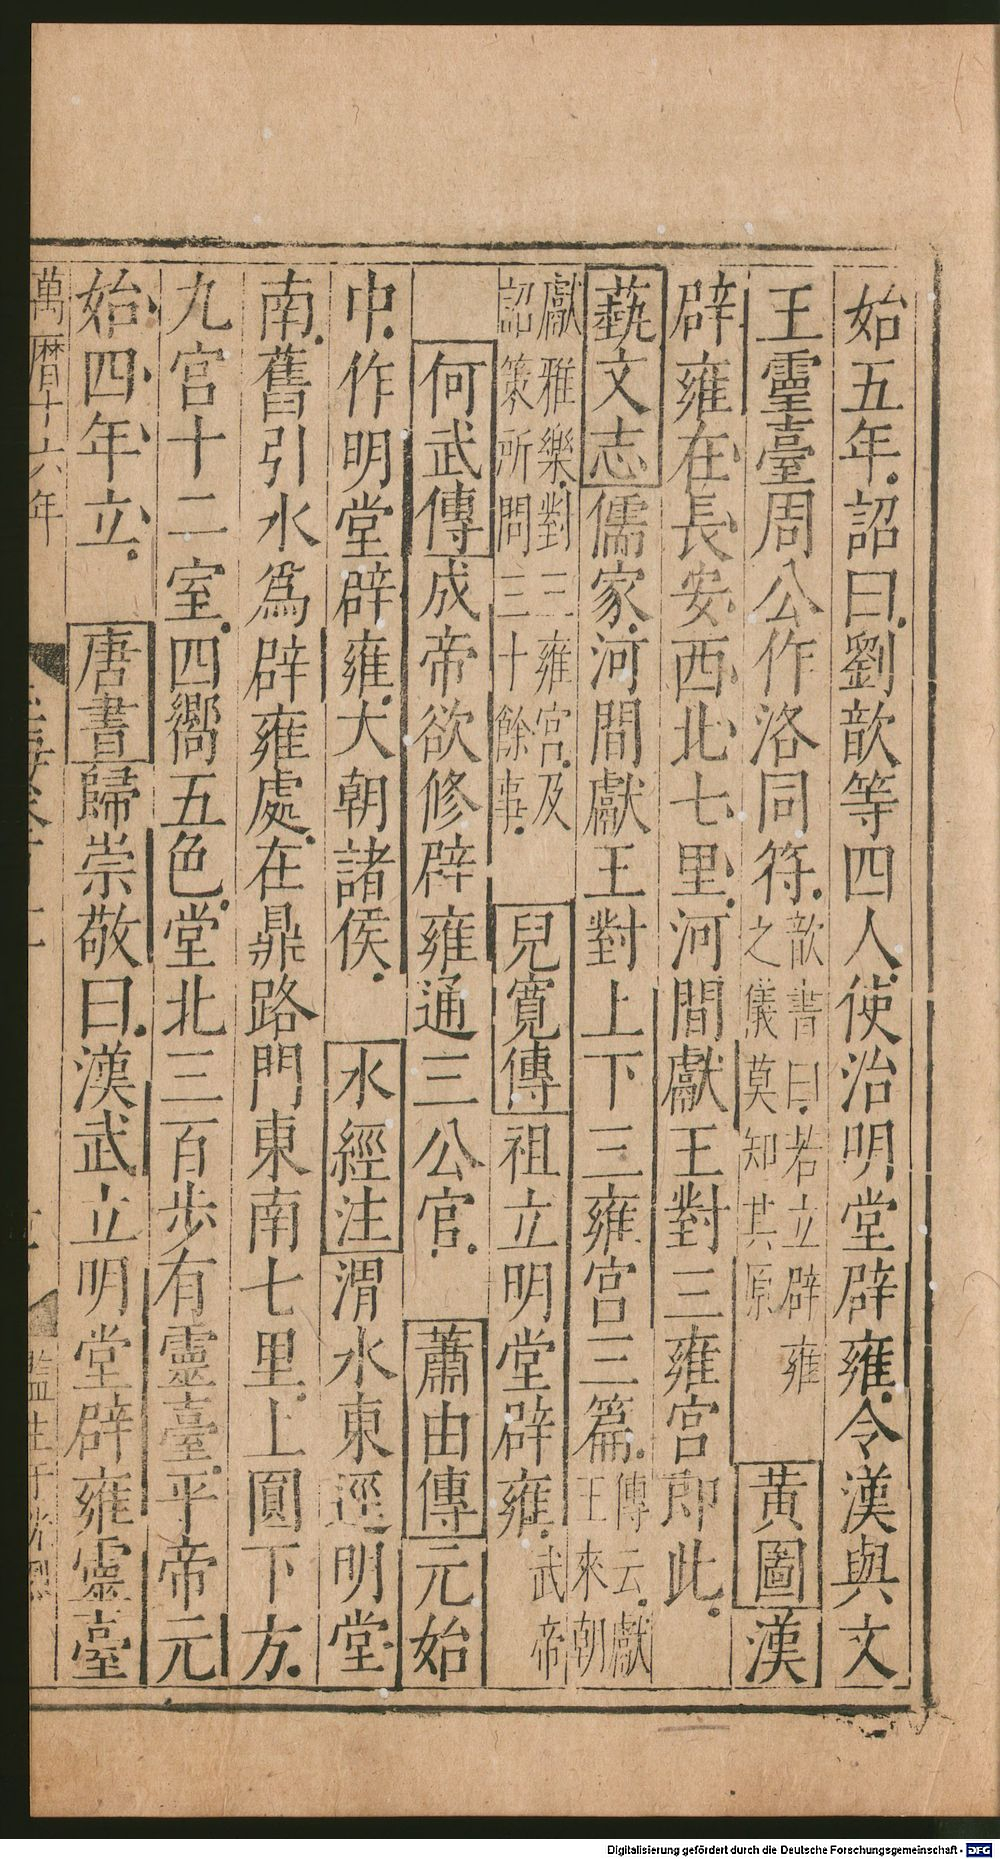 始五年詔曰劉歆等四人使治明堂辟雍令漢與文
王靈臺周公作洛同符歆書曰若立辟雍之儀莫知其原 黃圖漢
辟雍在長安西北七里河間獻王對三雍宮即此
藝文志儒家河間獻王對上下三雍宮三篇傳云獻王來朝
獻雅樂對三雍宮及詔策所問三十餘事 兒寬傳祖立明堂辟雍武帝
何武傳成帝欲修辟雍通三公官 蕭由傳元始
中作明堂辟雍大朝諸侯 水經注渭水東逕明堂
南舊引水為辟雍處在鼎路門東南七里上圓下方
九宮十二室四嚮五色堂北三百步有靈臺平帝元
始四年立 唐書歸崇敬曰漢武立明堂辟雍靈臺
萬曆十六年
Digitalisierung gefördert durch die Deutsche Forschungsgemeinschaft - DFG